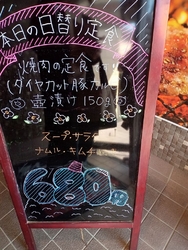 本日の日替り定食
焼肉の定食
(ダイヤカット豚カルビ)
壺漬け150g
スープ・サラダ
ナムル・キムチ
680